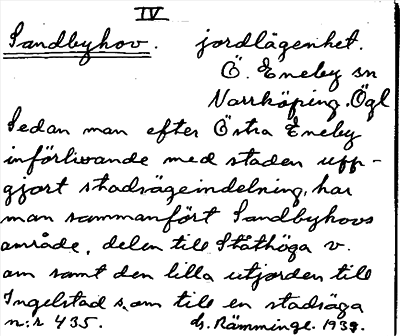 IV
Sandbyhov. jordlägenhet.
Ö. Eneby sn
Norrköping. Ögl
Sedan man efter Östra Eneby
införlivande med staden upp-
gjort stadsägeindelning, har
man sammanfört Sandbyhovs
område, delen till Ståthöga v.
om samt den lilla utjorden till
Ingelstad s. om till en stadsäga
n:r 435. Rämminge. 1938.